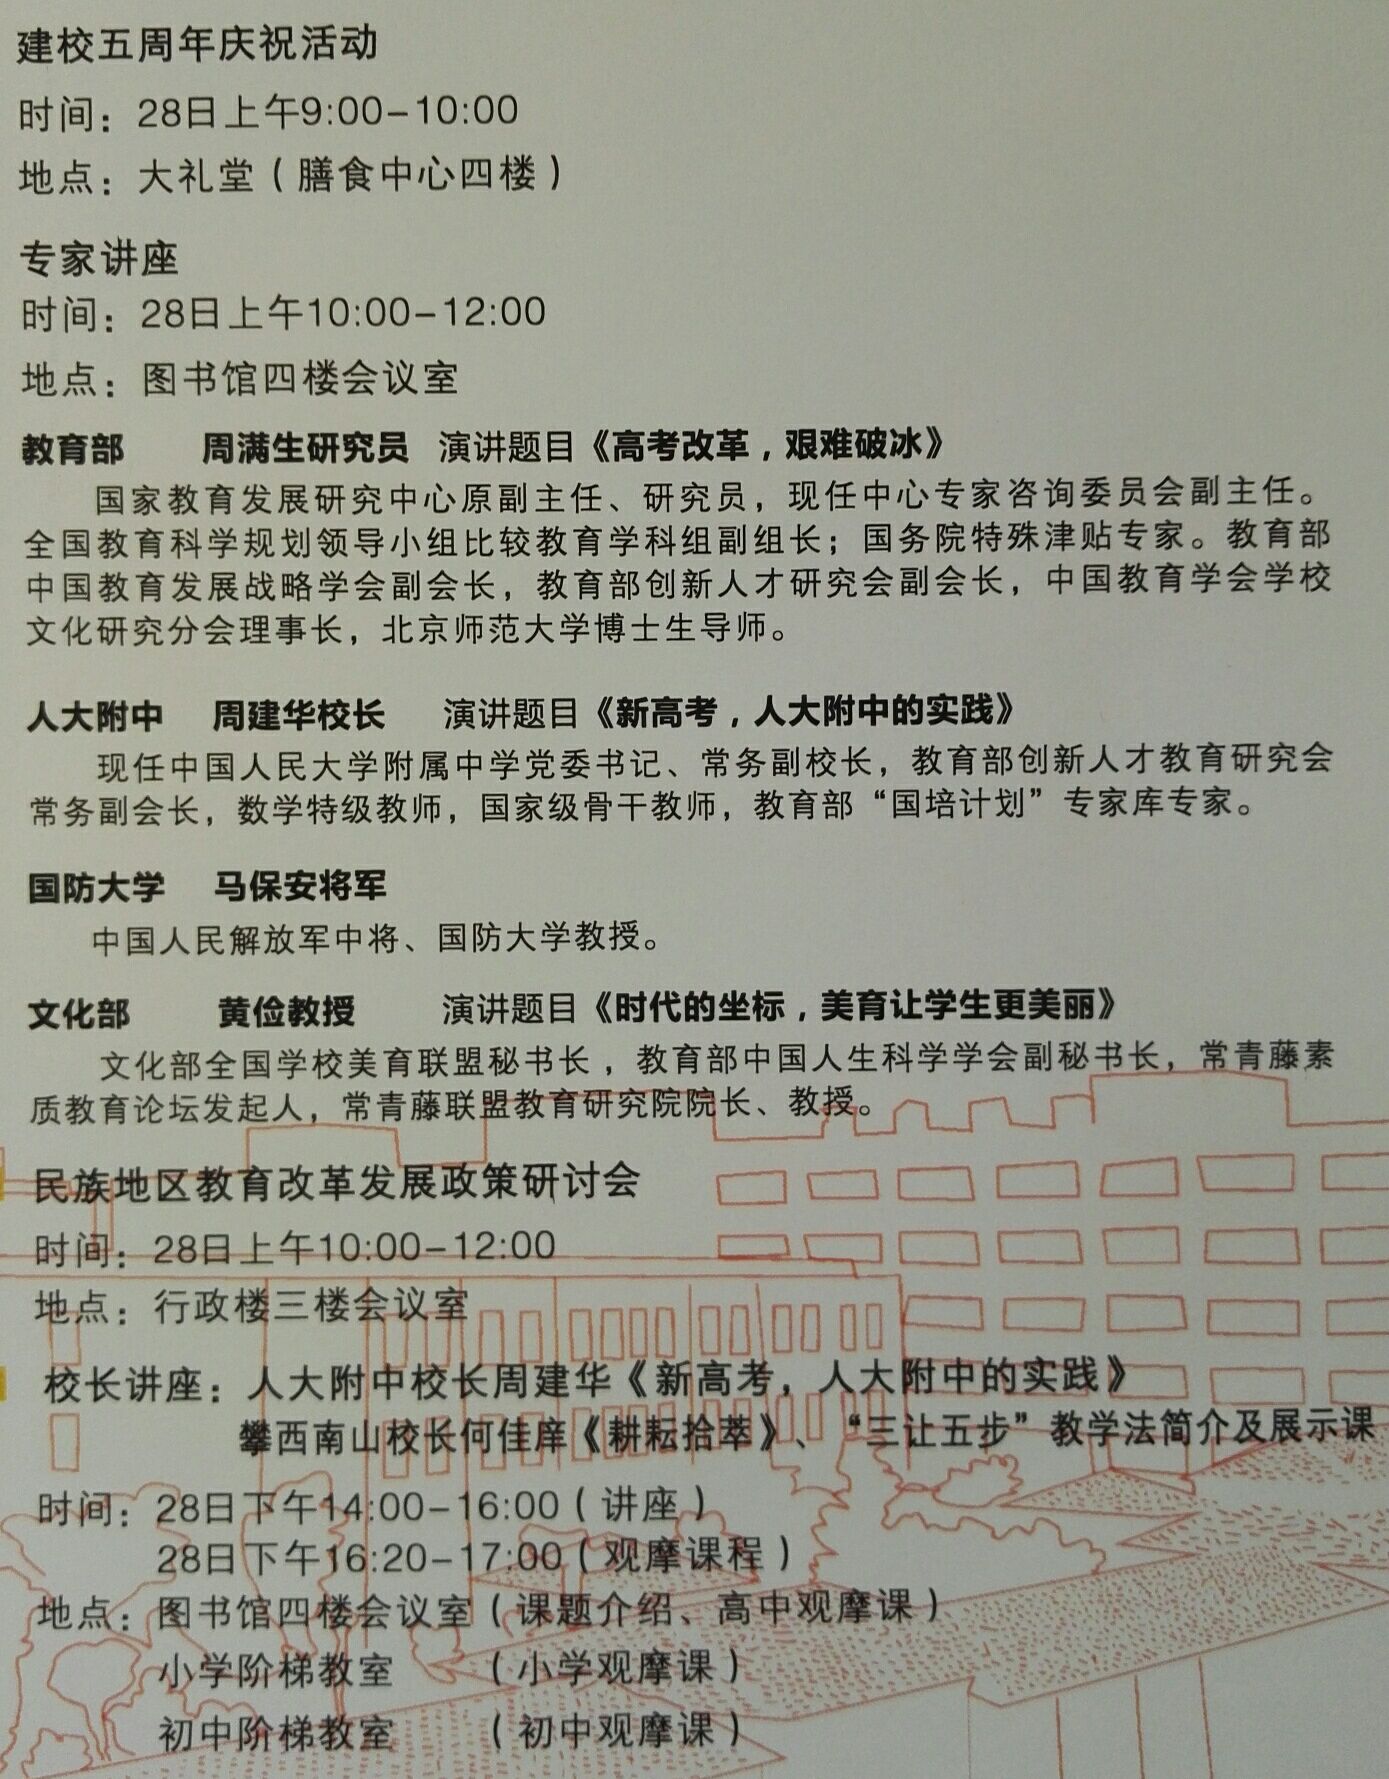 建校五周年庆祝活动
时间：28日上午9:00-10:00
地点：大礼堂（膳食中心四楼）
专家讲座
时间：28日上午10:00-12:00
地点：图书馆四楼会议室
教育部 周满生研究员 演讲题目《高考改革，艰难破冰》
国家教育发展研究中心原副主任、研究员，现任中心专家咨询委员会副主任。
全国教育科学规划领导小组比较教育学科组副组长；国务院特殊津贴专家。教育部
中国教育发展战略学会副会长，教育部创新人才研究会副会长，中国教育学会学校
文化研究分会理事长，北京师范大学博士生导师。
人大附中 周建华校长 演讲题目《新高考，人大附中的实践》
现任中国人民大学附属中学党委书记、常务副校长，教育部创新人才教育研究会
常务副会长，数学特级教师，国家级骨干教师，教育部“国培计划”专家库专家。
国防大学 马保安将军
中国人民解放军中将、国防大学教授。
文化部 黄俭教授 演讲题目《时代的坐标，美育让学生更美丽》
文化部全国学校美育联盟秘书长，教育部中国人生科学学会副秘书长，常青藤素
质教育论坛发起人，常青藤联盟教育研究院院长、教授。
民族地区教育改革发展政策研讨会
时间：28日上午10:00-12:00
地点：行政楼三楼会议室
校长讲座：人大附中校长周建华《新高考，人大附中的实践》
攀西南山校长何佳庠《耕耘拾萃》、“三让五步”教学法简介及展示课
时间：28日下午14:00-16:00（讲座）
28日下午16:20-17:00（观摩课程）
地点：图书馆四楼会议室（课题介绍、高中观摩课）
小学阶梯教室 （小学观摩课）
初中阶梯教室 （初中观摩课）